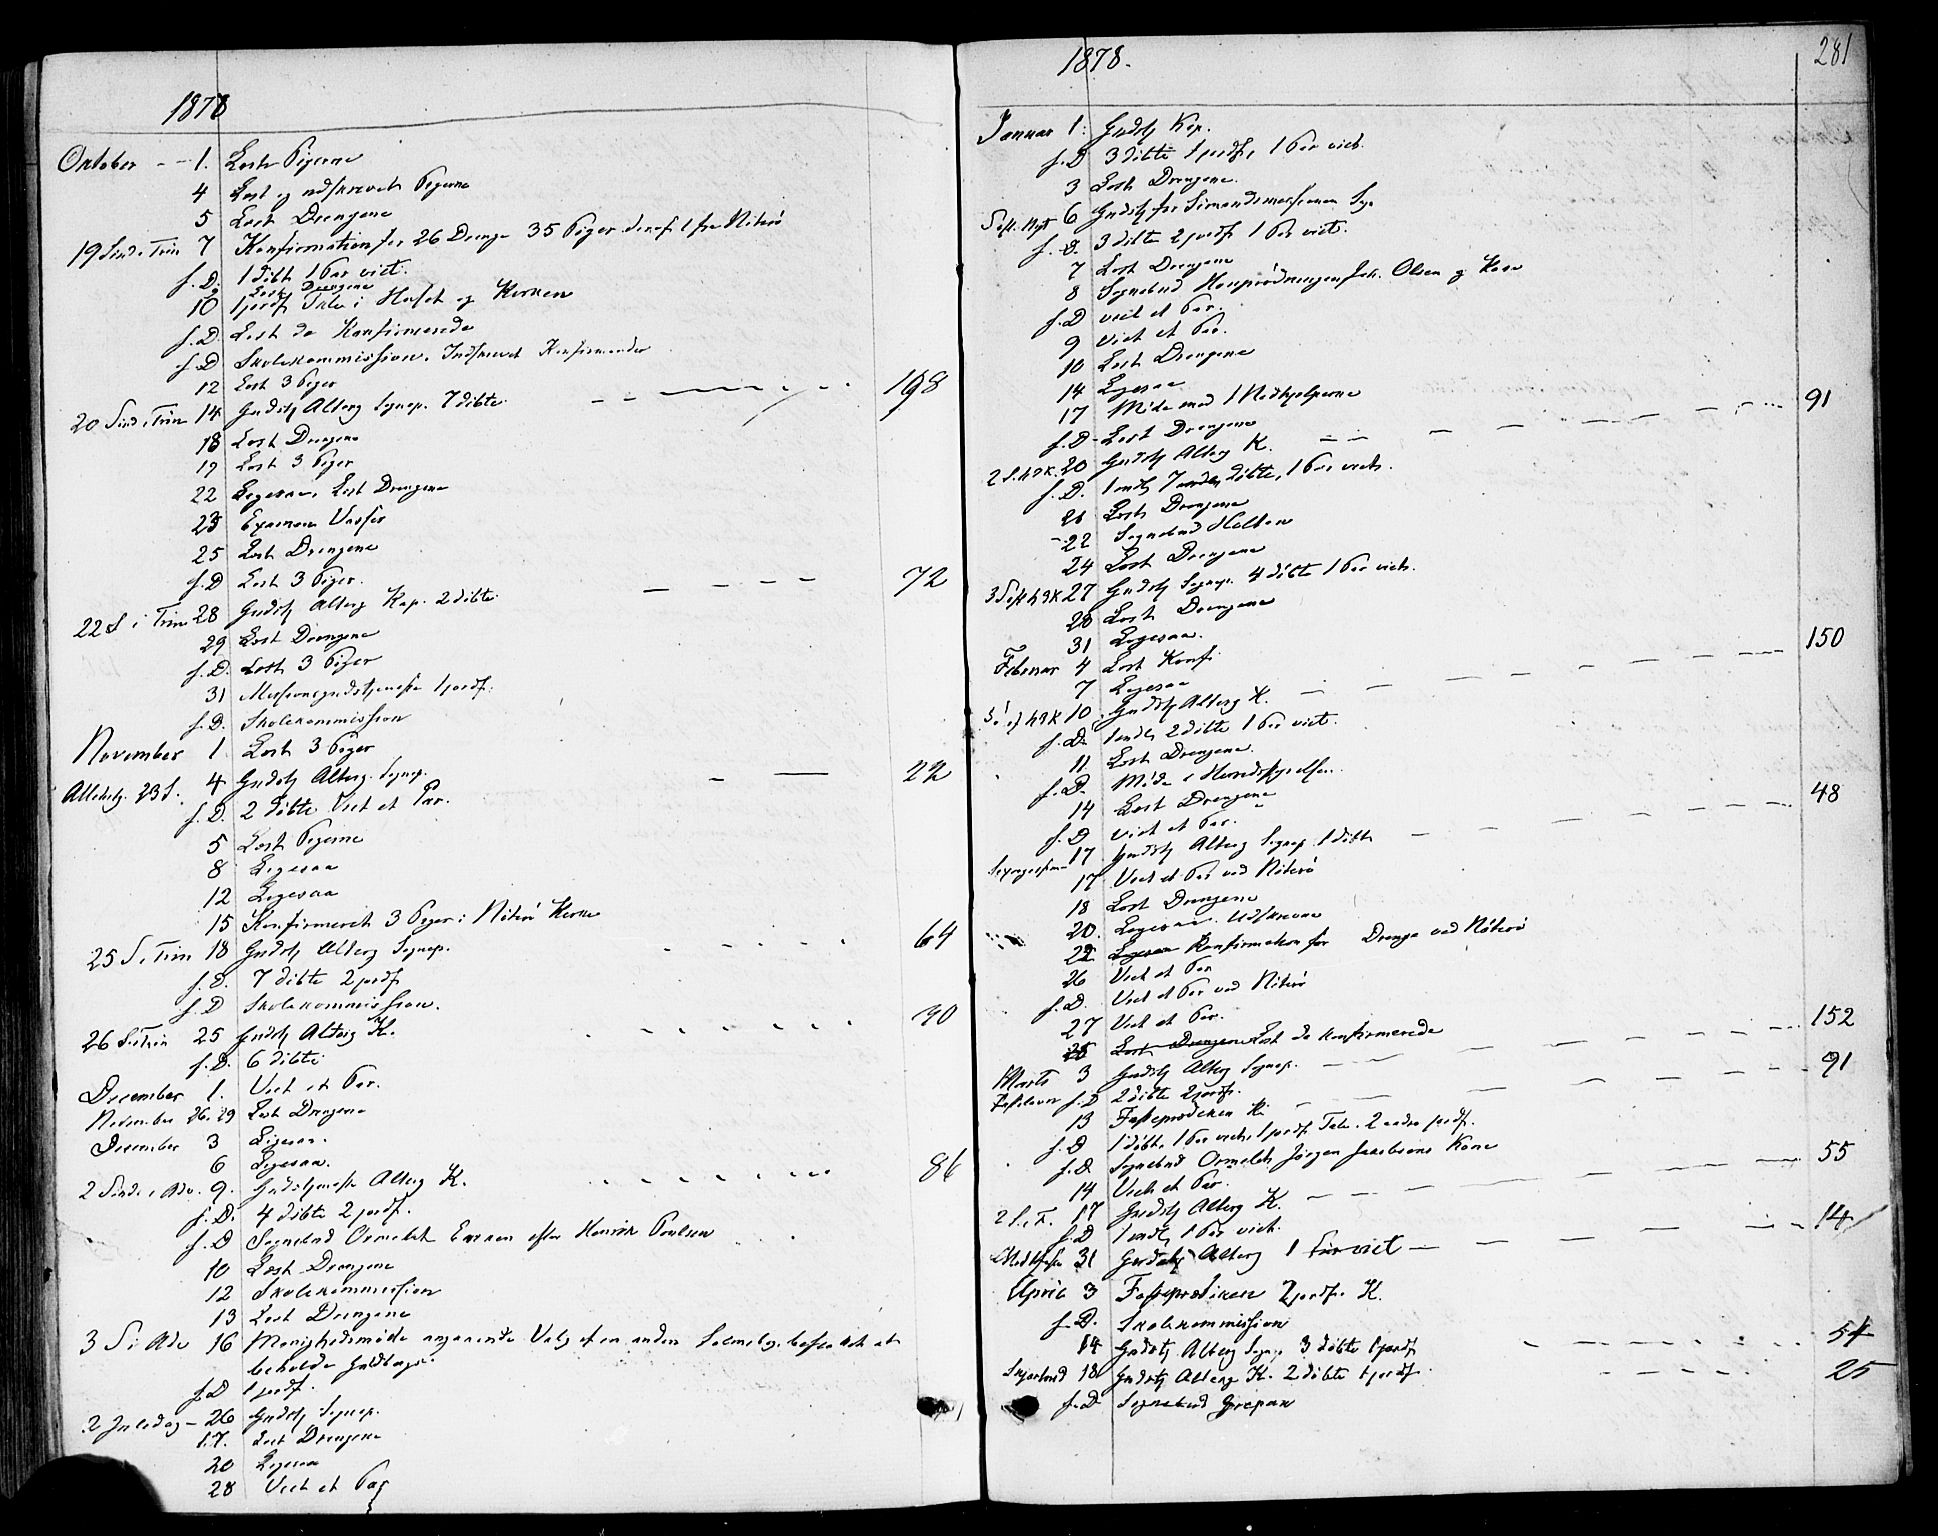 1878
Oktober - - 1. Læst Pigerne
4 Læst og udskrevet Pigerne
5 Læst Drengene
19 Sønd. i Trin 7 Konfirmation for 26 Drenge 35 Piger deraf 1 fra Nøterø
s. D. 1 døbt 1 Par viet.
9 Læst Drengene
10 1 jordf. Tale i Huset og Kirken
s. D Læst de Konfirmerede
s. D Skolekommission. Indskrevet Konfirmander
12 Læst 3 Piger
20 Sønd i Trin 14 Gudstj Alterg Sognep. 7 døbte 198
18 Læst Drengene
19 Læst 3 Piger
22 Ligesaa, Læst Drengene
23 Examen Vasser
25 Læst Drengene
s. D Læst 3 Piger. 72
22 S i Trin 28 Gudstj Alterg Kap. 2 døbte
29 Læst Drengene
s. D. Læst 3 Piger
31 Missionsgudstjeneste 1 jordf.
s. D. Skolekommission
November 1 Læst 3 Piger
Allehelg. 23 S. 4 Gudstj Alterg. Sognep. 22
s. D. 2 døbte Viet et Par.
5 Læst Pigerne
8 Ligesaa
12 Ligesaa
15 Konfirmeret 3 Piger i Nøterø Kirke
25 S. i Trin 18 Gudstj Alterg Sognep. 64
s. D. 7 døbte 2 jordf
s. D Skolekommission.
26 S i Trin 25 Gudstj Alterg K. 90
s. D. 6 døbte
December 1. Viet et Par.
November 26. 29 Læst Drengene
December 3 Ligesaa.
6 Ligesaa.
2 Sønd i Adv. 9. Gudstjeneste Alterg K. 86
s. D. 4 døbte 2 jordf.
s. D Sognebud Ormelet Enken efter Henrik Paulsen
10 Læst Drengene
12 Skolekommission
13 Læst Drengene
3 S i Adv 16 Menighedsmøde angaaende Valg af en anden Salmebog. besluttet at
beholde Guldbergs.
s. D 1 jordf.
2 Juledag - 26 Gudstj Sognep.
17. Læst Drengene
20 Ligesaa
28 Viet et Par
1878.
281
Januar 1: Gudstj Kap.
s. D 3 døbte 1 jordf, 1 Par viet.
3 Læst Drengene.
Søst. Nyt 6 Gudstj for Sømandsmissionen Sgp
s. D. 3 døbte 2 jordf. 1 Par viet.
7 Læst Drengene
8 Sognebud Olsen og Kone
s. D viet et Par.
9 Viet et Par.
10 Læst Drengene
14 Ligesaa
17 Møde med 1 Medhjelperne
s. D - Læst Drengene 91
2 S. h3K. 20 Gudstj Alterg K.
s. D. 1 indl, 7 døbte, 1 Par viet.
21 Læst Drengene
22 Sognebud Holten
24 Læst Drengene
3 Søst h3K 27 Gudstj Sognep. 4 døbte 1 Par viet.
28 Læst Drengene
31 Ligesaa.
Februar 4 Læst Konf. 150
7 Ligesaa
h3K 10 Gudstj Alterg K.
s. D. 1 indl, 2 døbte 1 Par viet.
11 Læst Drengene.
s. D. Møde i Herredsstyrelsen.
14 Læst Drengene 48
s. D viet et Par.
17 Gudstj Alterg Sognep. 1 døbt
17 Viet et Par ved Nøterø
18 Læst Drengene
20. Ligesaa. Udskrevne
22 Ligesaa Konfirmation for Drenge ved Nøterø
26 Viet et Par
s. D. Viet et Par ved Nøterø
27 Viet et Par.
28 Læst Drengene Læst de konfirmerede 152
Marts 3 Gudstj Alterg Sognep.
Fastelavn s. D 2 døbte 2 jordf. 91
13 Fasteprædiken K.
s. D 1 døbt, 1 Par viet, 1 jordf. Tale. 2 andre jordf.
s. D. Sognebud Ormelet Jørgen Jacobsens Kone 55
14 Viet et Par.
2 S. i F. 17 Gudstj Alterg K.
s. D 1 indl, 1 Par viet. 14
Midtfaste 31 Gudstj Alterg 1 Par viet
April 3 Fasteprædiken 2 jordf. K.
s. D. Skolekommission
14 Gudstj Alterg Sognep 3 døbte 1 jordf 54
Skjærtorsd 18 Gudstj Alterg K. 2 døbte 1 jordf 25
s. D Sognebud Grepan